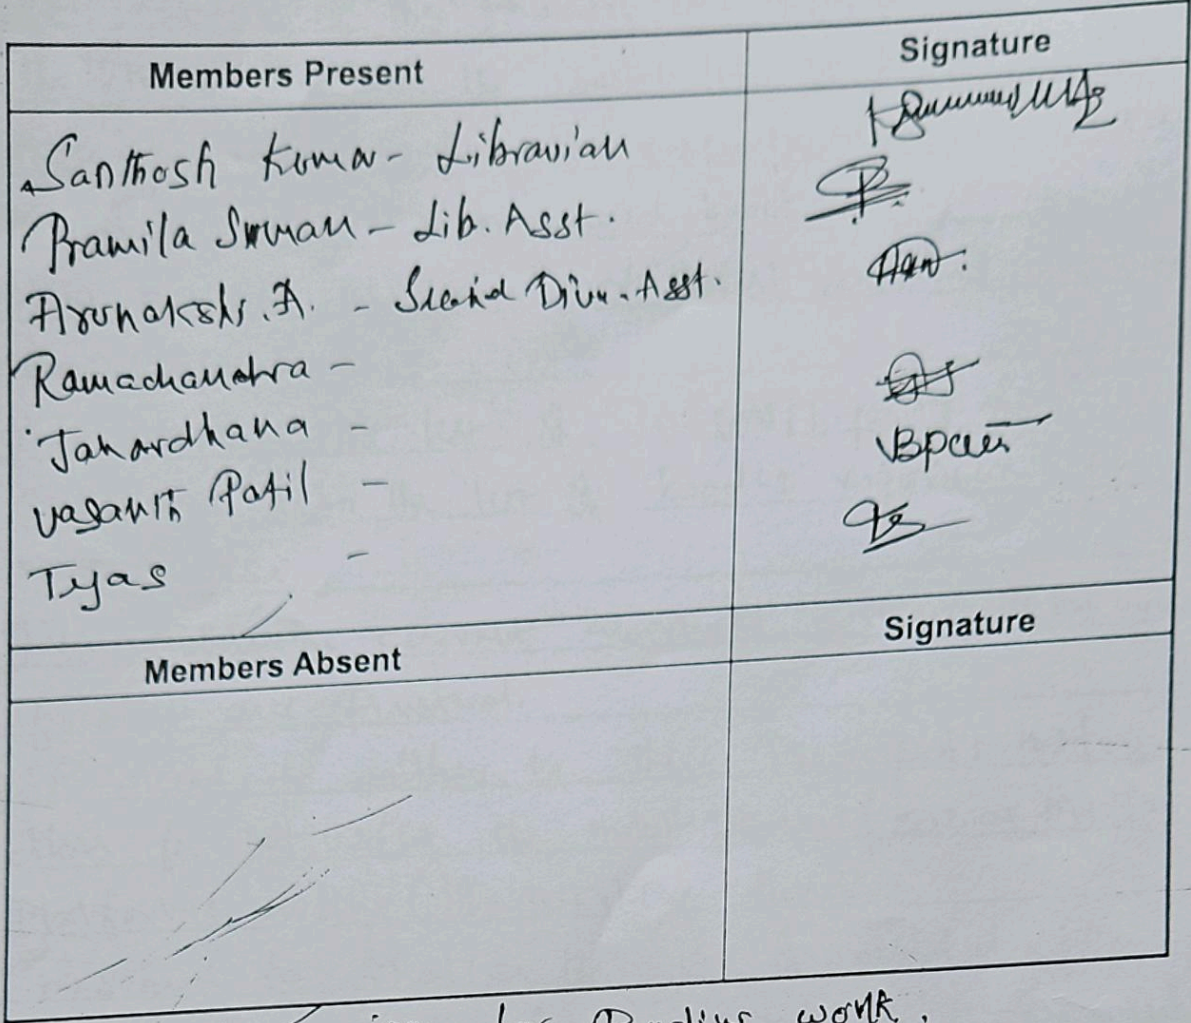 Members Present Signature
Santhosh Kumar - Librarian
Pramila Suman - Lib. Asst.
Arunakshi. A. - Second Divn. Asst.
Ramachandra -
Janardhana -
Vasanth Patil - VBPatil
Tejas -
Members Absent Signature
work.